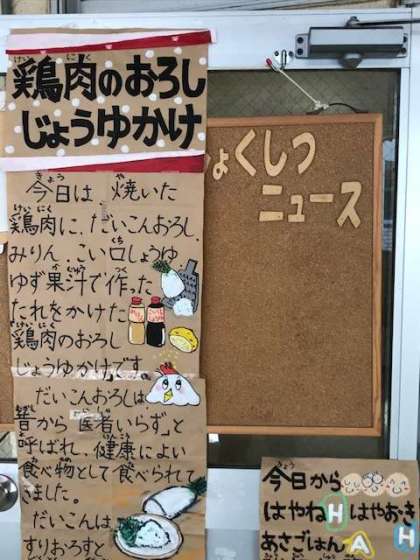 鶏肉のおろし
じょうゆかけ
今日は、焼いた
鶏肉に、だいこんおろし、
みりん、こい口しょうゆ
ゆず果汁で作った
たれをかけた
鶏肉のおろし
じょうゆかけです。
だいこんおろしは、
昔から「医者いらず」と
呼ばれ、健康によい
食べ物として食べられて
きました。
だいこんは、
すりおろすと
ょくしつ
ニュース
今日から
はやね はやおき
あさごはん
H
A
H